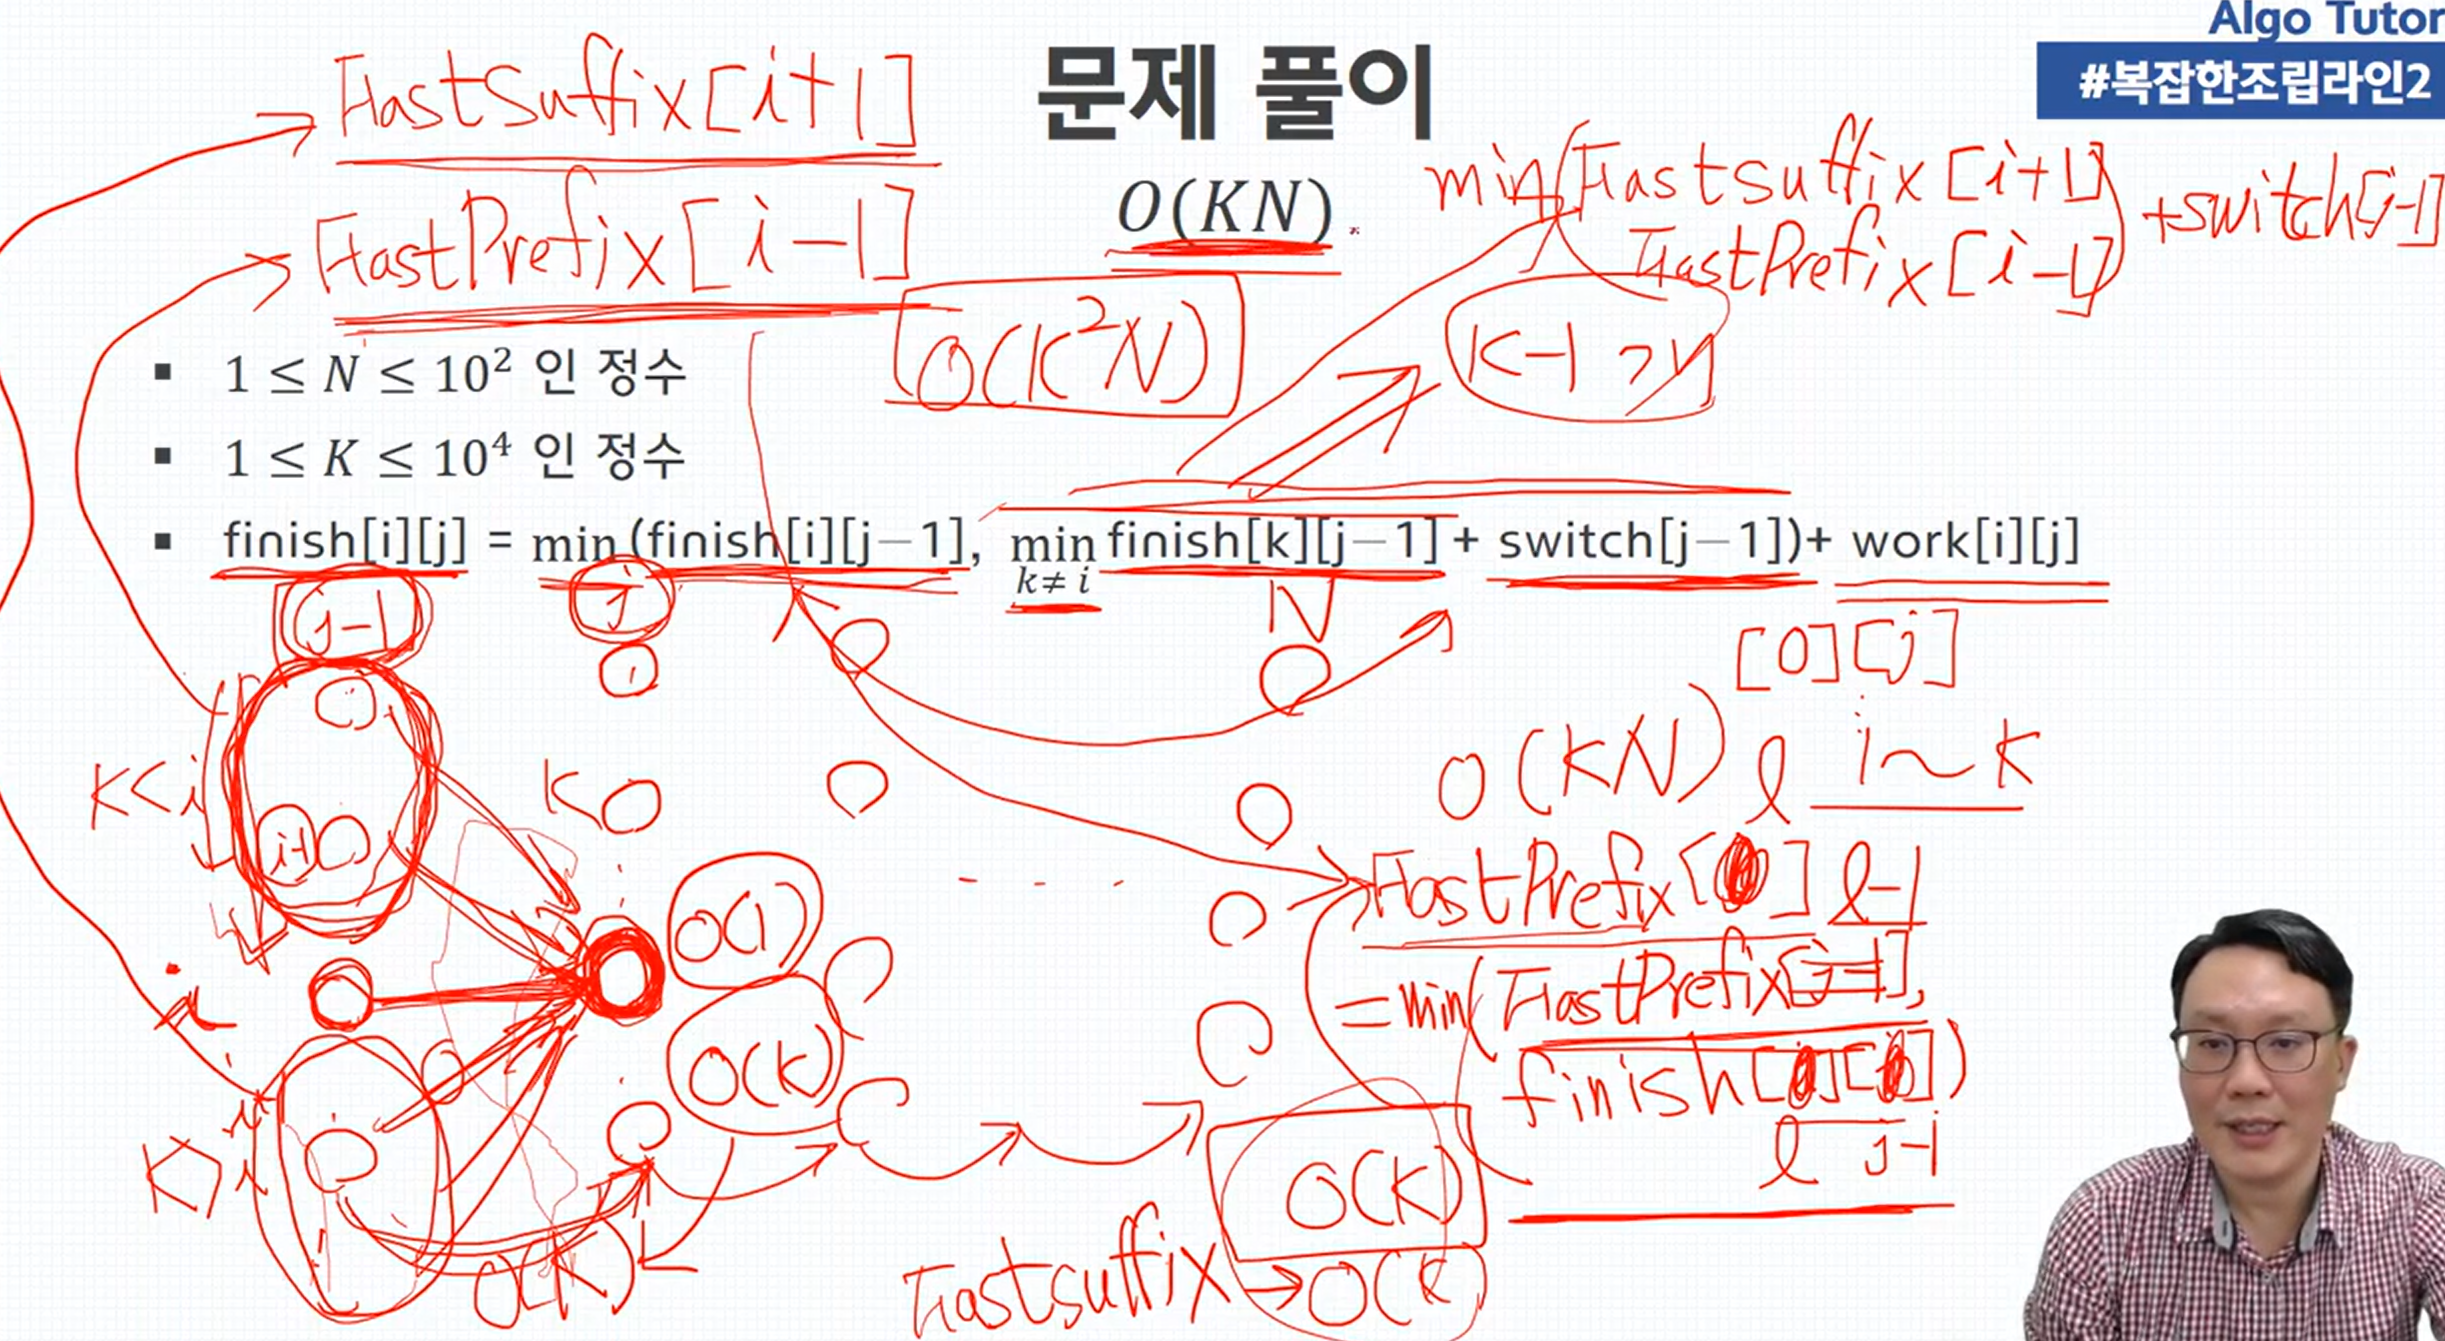 Algo Tutor
#복잡한조립라인2
문제 풀이
FastSuffix[i+1]
FastPrefix[i-1]
O(KN)
min(FastSuffix[i+1]
FastPrefix[i-1])
+switch[j-1]
O(K²N)
K-1 개
▪ 1 ≤ N ≤ 10² 인 정수
▪ 1 ≤ K ≤ 10⁴ 인 정수
▪ finish[i][j] = min (finish[i][j−1], min finish[k][j−1] + switch[j−1])+ work[i][j]
k≠ i
j-1
j
N
[0][j]
K<i
i+1
K
O(KN)
l
1~K
O(1)
FastPrefix[ ] l-1
=min(FastPrefix[j-1],
finish[ ][ ])
l j-1
i
O(K)
K>i
O(K)
O(K)
Fastsuffix → O(K)